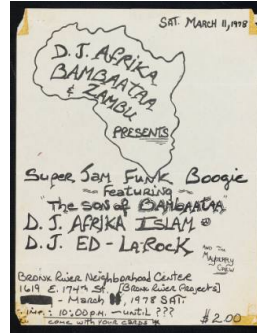 SAT. MARCH 11, 1978
D.J. AFRIKA
BAMBAATAA
& ZAMBU
PRESENTS
Super Jam Funk Boogie
Featuring
"The son of BAMBAATAA"
D.J. AFRIKA ISLAM
D.J. ED-LA-ROCK
AND THE
Mayberry
Crew
Bronx River Neighborhood Center
1619 E. 174th St. [Bronx River Projects]
- March 11, 1978 SAT.
Time: 10:00 P.M. - until ???
come with your cards
$2.00